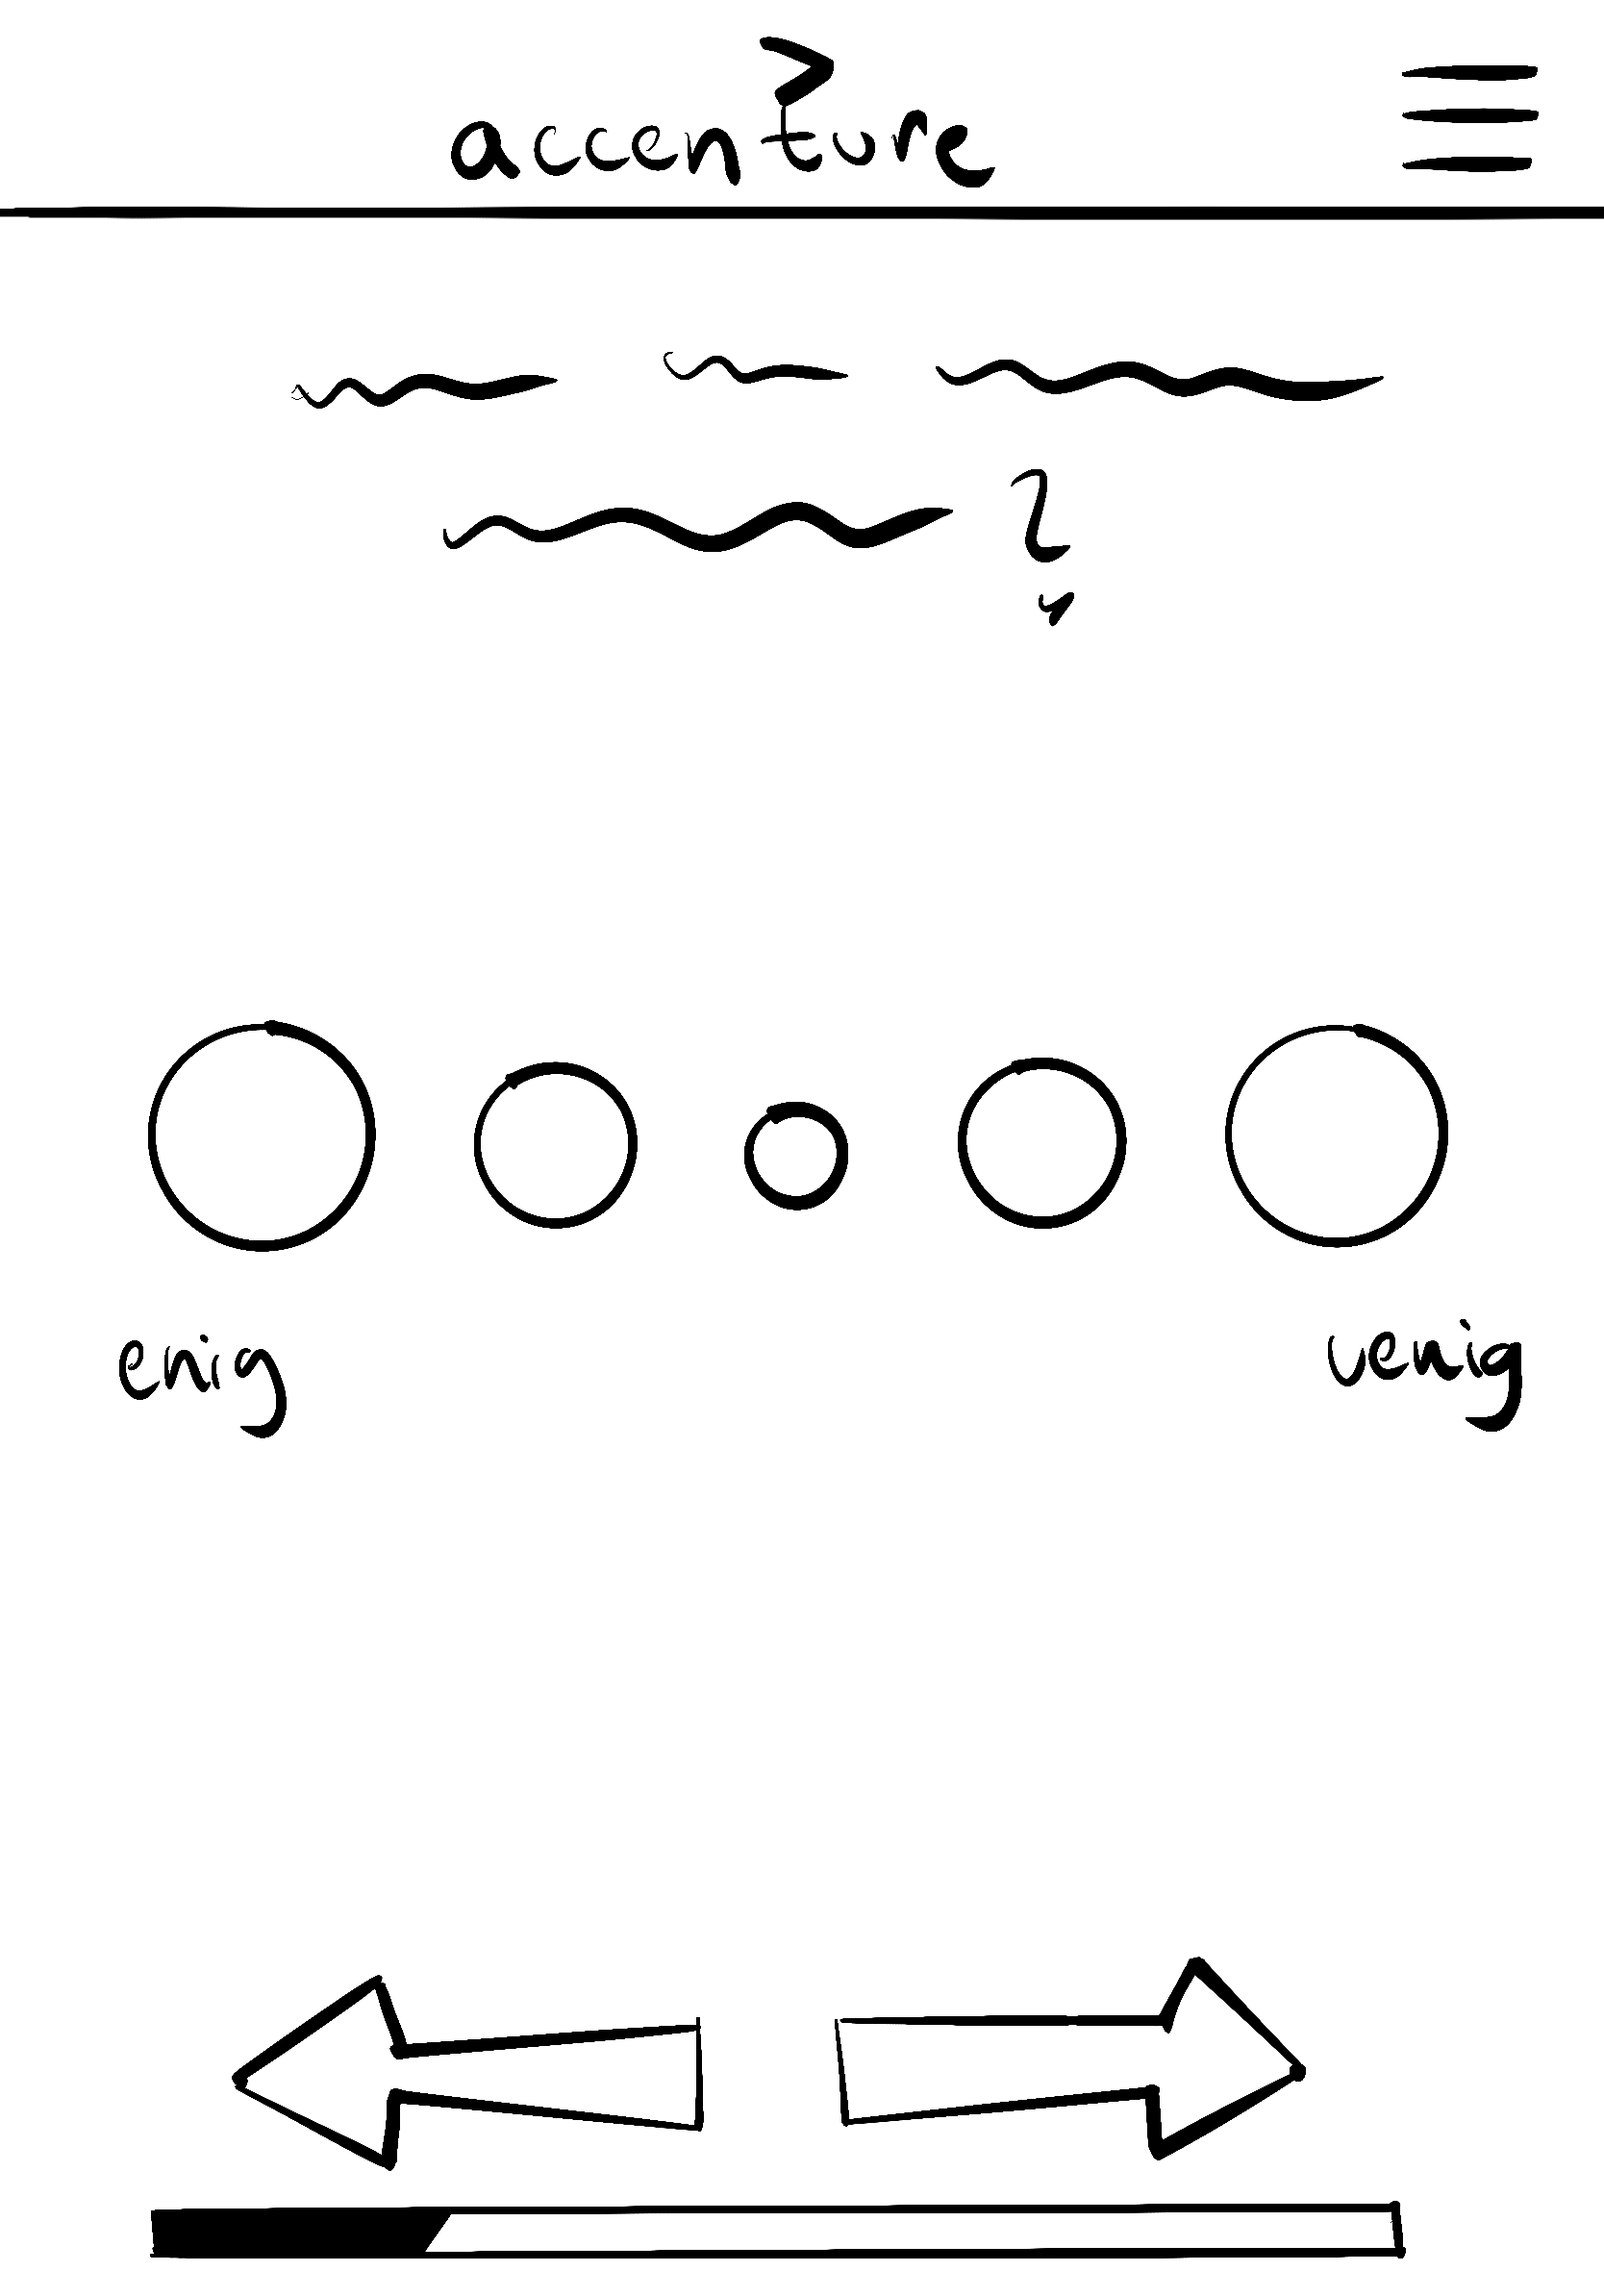 accenture
?
enig venig